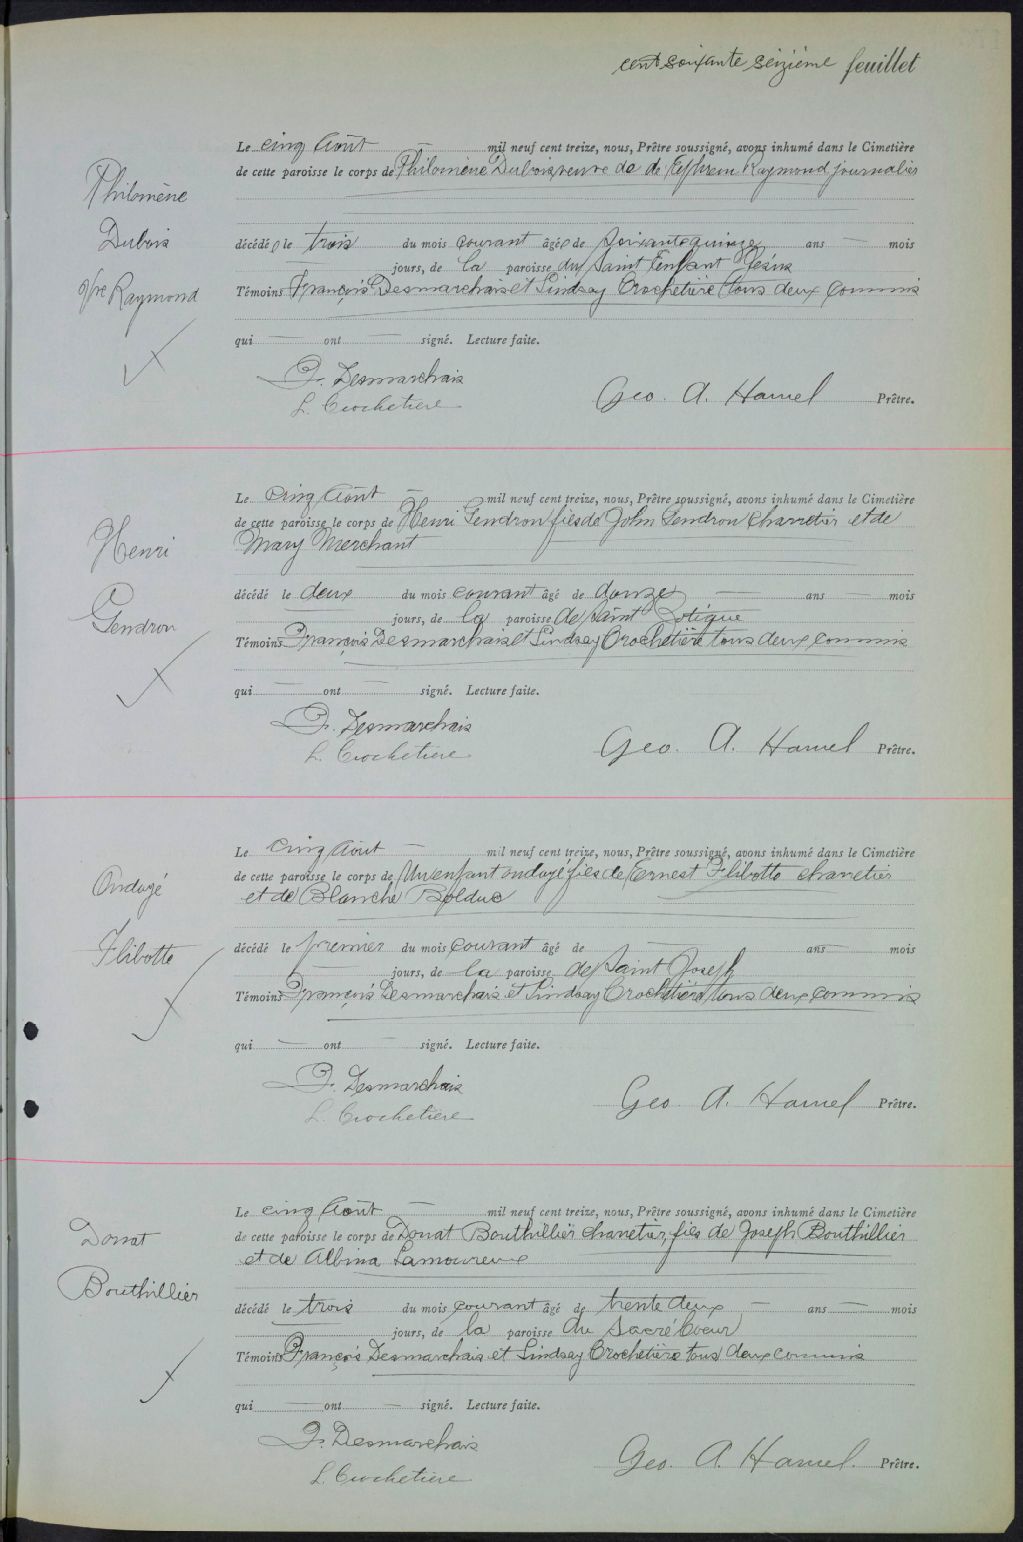 cent soixante seizième feuillet
Le cinq Août — mil neuf cent treize, nous, Prêtre soussigné, avons inhumé dans le Cimetière
de cette paroisse le corps de Philomène Dubois veuve de de Ephrem Raymond journalier
Philomène
Dubois
Vve Raymond
décédée le trois du mois courant âgée de soixante quinze ans — mois
jours, de la paroisse du Saint Enfant Jésus
Témoins François Desmarchais et Lindsay Crochetière tous deux commis
qui — ont — signé. Lecture faite.
F. Desmarchais
L. Crochetière
Geo. A. Hamel Prêtre.
Le cinq Août — mil neuf cent treize, nous, Prêtre soussigné, avons inhumé dans le Cimetière
de cette paroisse le corps de Henri Gendron fils de John Gendron charretier et de
Mary Merchant
Henri
Gendron
décédé le deux du mois courant âgé de douze — ans — mois
jours, de la paroisse de Saint Zotique
Témoins François Desmarchais et Lindsay Crochetière tous deux commis
qui — ont — signé. Lecture faite.
F. Desmarchais
L. Crochetière
Geo. A. Hamel Prêtre.
Le cinq Août — mil neuf cent treize, nous, Prêtre soussigné, avons inhumé dans le Cimetière
de cette paroisse le corps de Un enfant ondoyé fils de Ernest Flibotte charretier
et de Blanche Bolduc
Ondoyé
Flibotte
décédé le premier du mois courant âgé de — ans — mois
jours, de la paroisse de Saint Joseph
Témoins François Desmarchais et Lindsay Crochetière tous deux commis
qui — ont — signé. Lecture faite.
F. Desmarchais
L. Crochetière
Geo. A. Hamel Prêtre.
Le cinq Août — mil neuf cent treize, nous, Prêtre soussigné, avons inhumé dans le Cimetière
de cette paroisse le corps de Donat Bouthillier charretier, fils de Joseph Bouthillier
et de Albina Lamoureux
Donat
Bouthillier
décédé le trois du mois courant âgé de trente deux — ans — mois
jours, de la paroisse du Sacré Coeur
Témoins François Desmarchais et Lindsay Crochetière tous deux commis
qui — ont — signé. Lecture faite.
F. Desmarchais
L. Crochetière
Geo. A. Hamel. Prêtre.